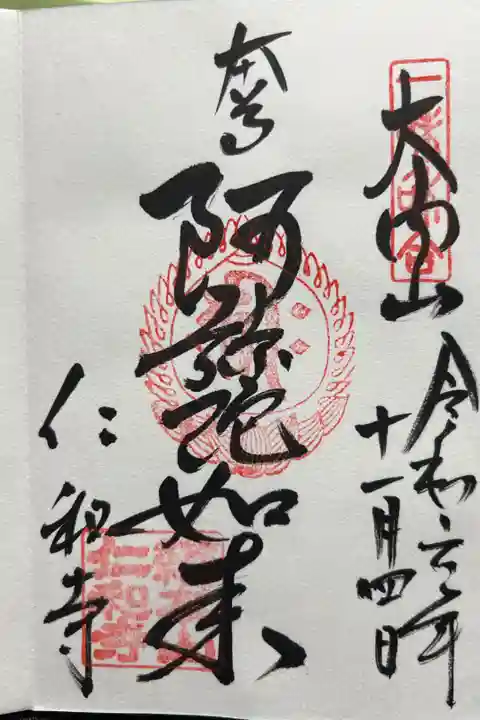 大内山
令和六年
十一月四日
本尊
阿弥陀如来
仁和寺